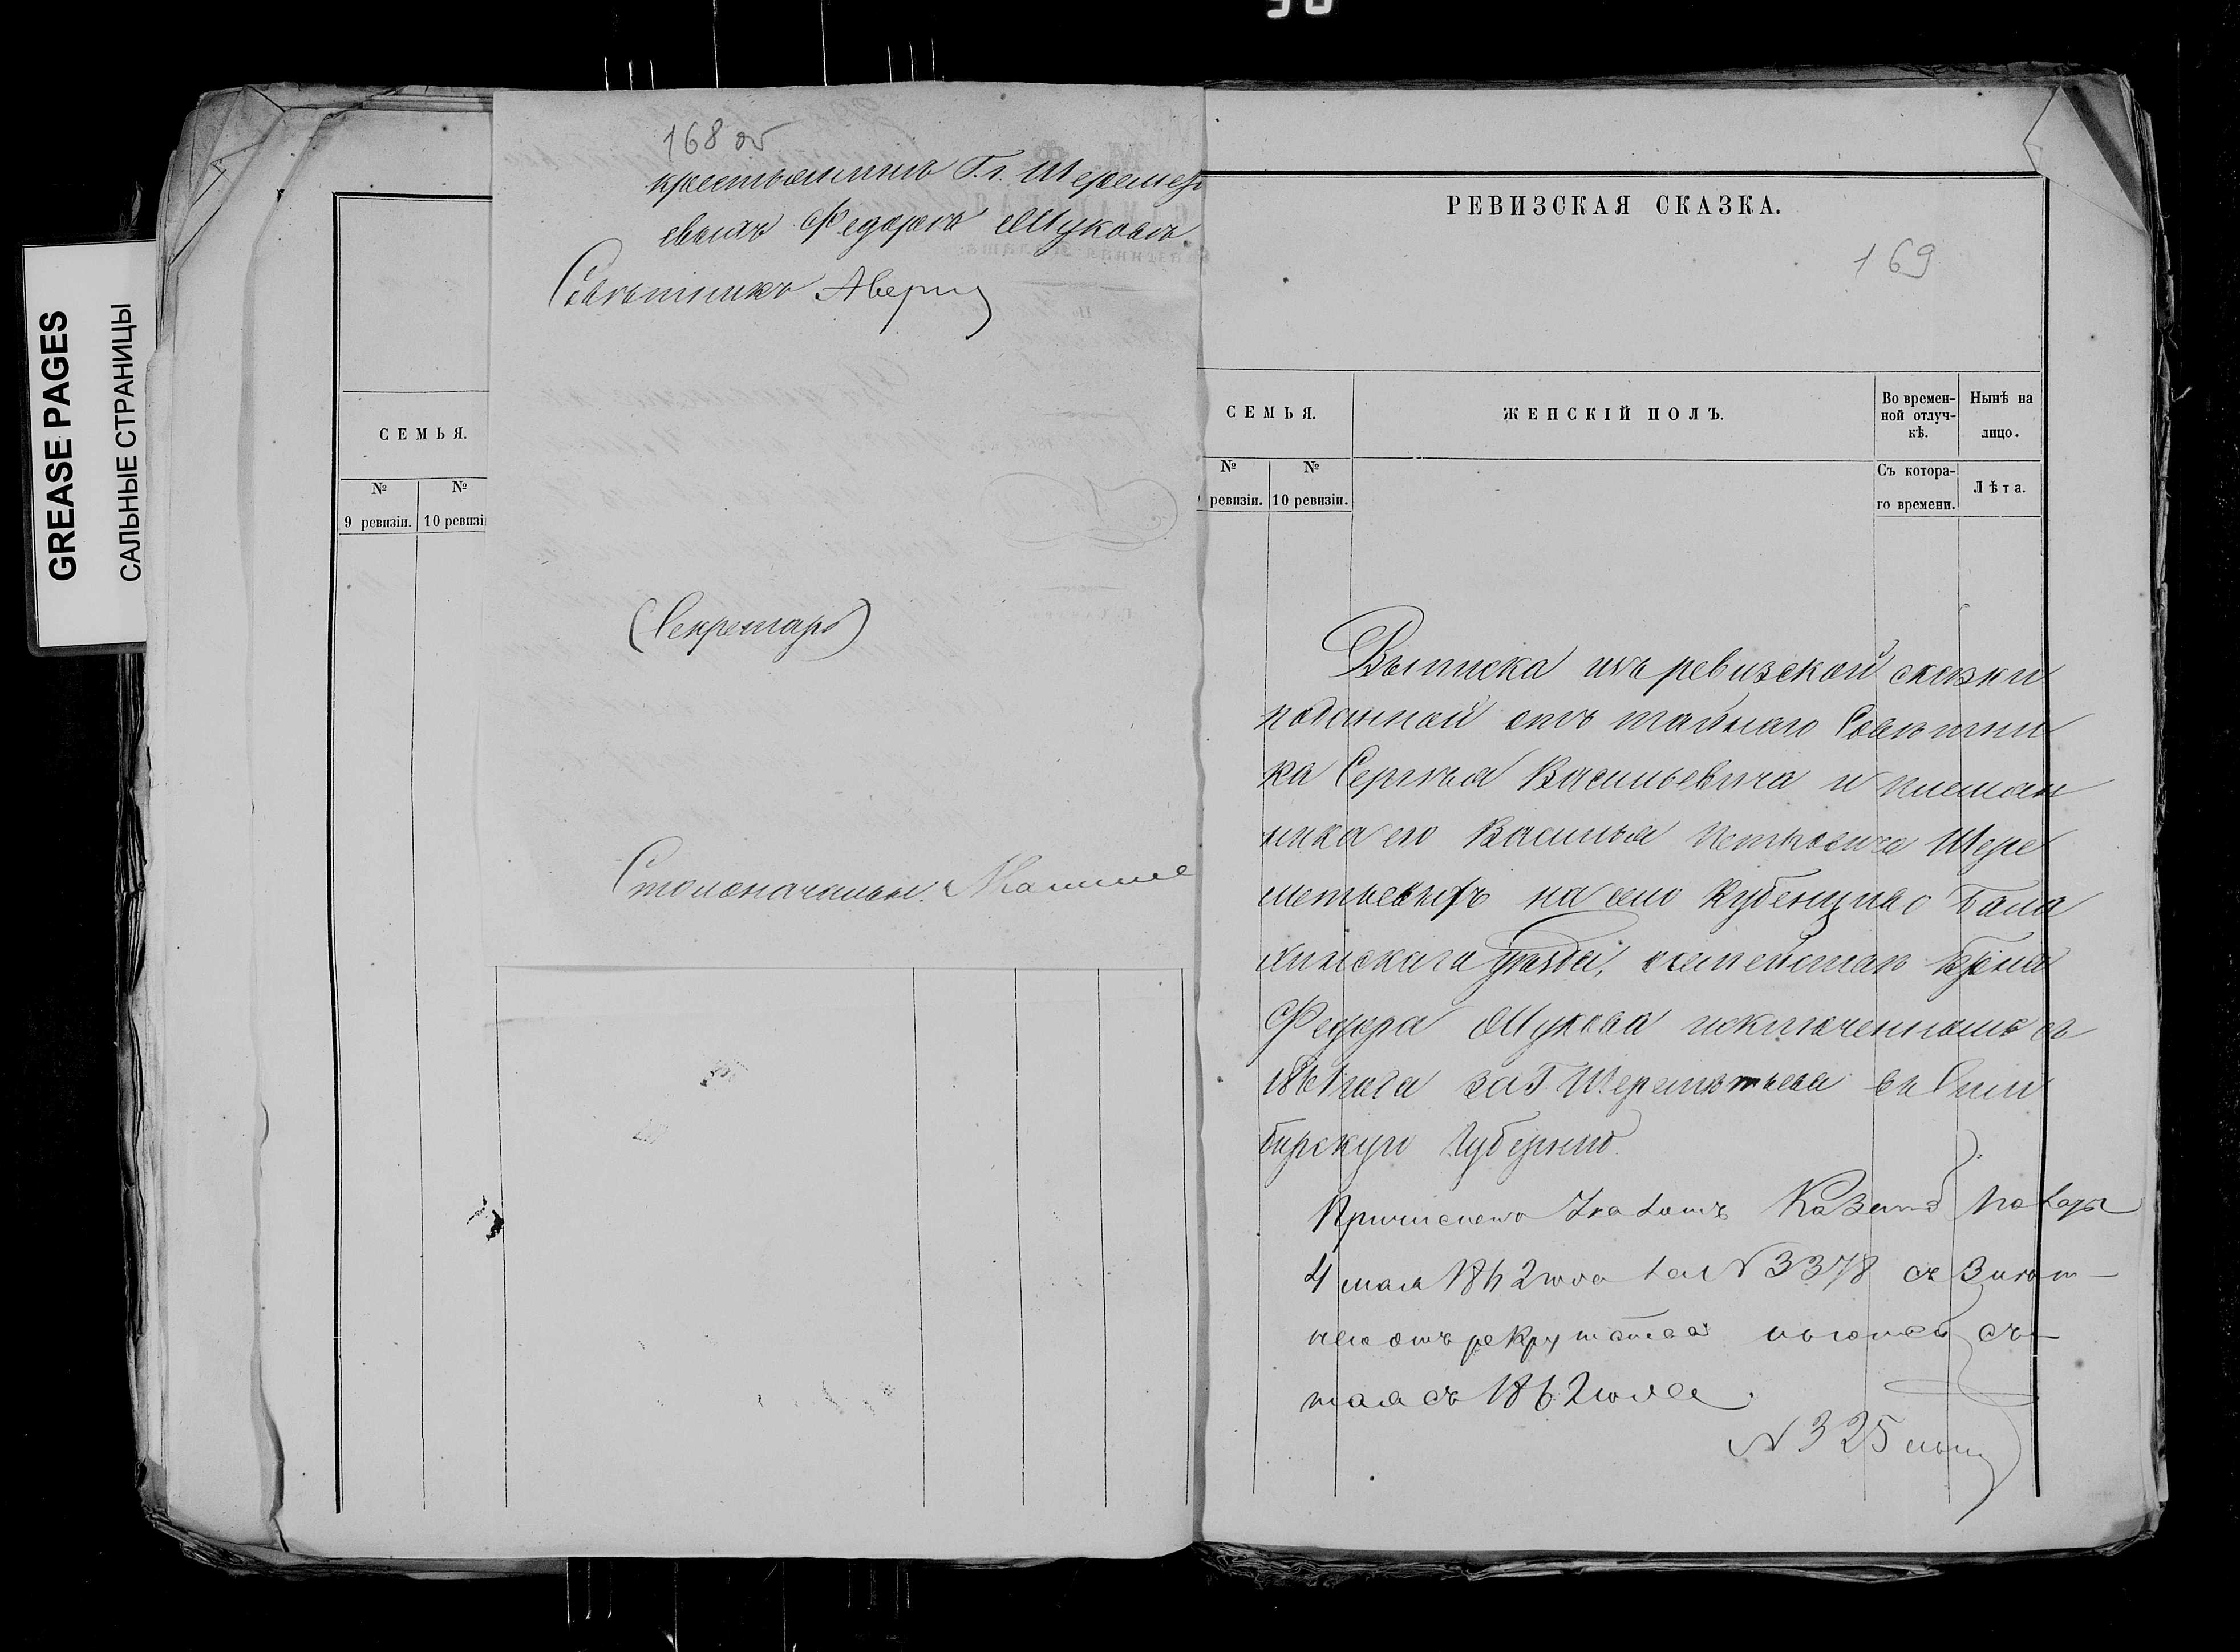 GREASE PAGES
САЛЬНЫЕ СТРАНИЦЫ
168 об
крестьянинъ Г.г. Шереметь
евыхъ Федоръ Жуковъ
Совѣтникъ Аверин
(Секретарь)
Столоначальн.
СЕМЬЯ.
№ №
9 ревизіи. 10 ревизі
РЕВИЗСКАЯ СКАЗКА.
169
СЕМЬЯ. ЖЕНСКІЙ ПОЛЪ. Во времен-ной отлуч-кѣ. Нынѣ на лицо.
№ № Съ котора-го времени. Лѣта.
ревизіи. 10 ревизіи.
Выписка изъ ревизской сказки
поданной отъ тайнаго Совѣтни
ка Сергѣя Васильевича и племян
ника его Василья Петровича Шере
метьевыхъ на село Кубенцово Бала
хнинскаго уѣзда, семейства кр-на
Федора Жукова исключеннаго съ
1861 года за Г Шереметьева въ Сим
бирскую Губернію.
Причислено Указомъ Казенной Палаты
4 мая 1862 года за N 3378 съ
отъ рекрутства
съ 1862 года
N 325